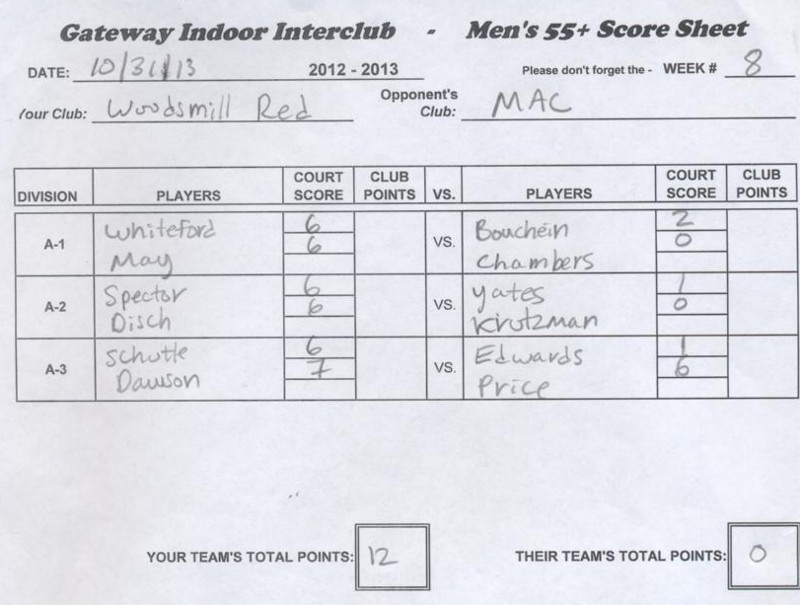 Gateway Indoor Interclub - Men's 55+ Score Sheet
DATE: 10/31/13 2012 - 2013 Please don't forget the - WEEK # 8
Your Club: Woodsmill Red Opponent's Club: MAC
DIVISION PLAYERS COURT SCORE CLUB POINTS VS. PLAYERS COURT SCORE CLUB POINTS
A-1 Whiteford 6 VS. Bouchein 2
May 6 Chambers 0
A-2 Spector 6 VS. Yates 1
Disch 6 Krutzman 0
A-3 Schutte 6 VS. Edwards 1
Dawson 7 Price 6
YOUR TEAM'S TOTAL POINTS: 12 THEIR TEAM'S TOTAL POINTS: 0